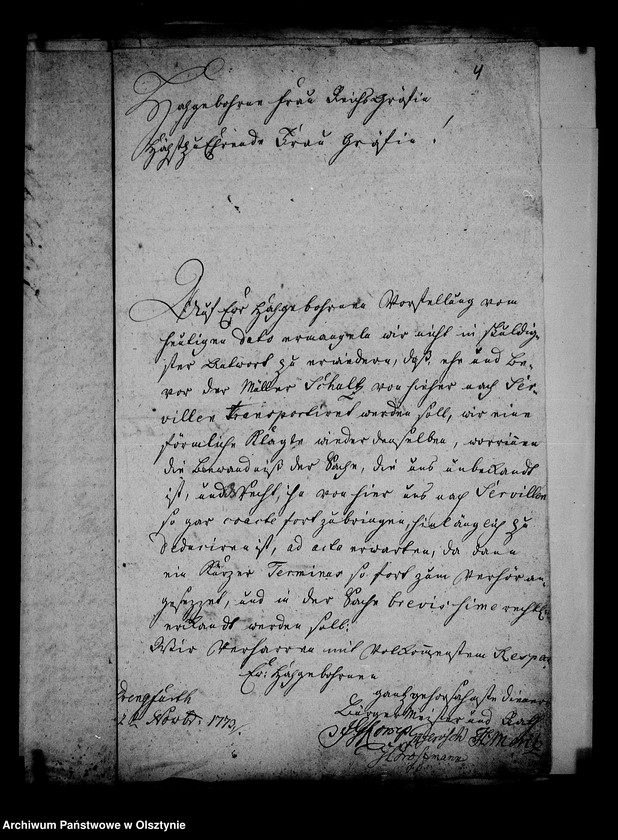 4
Hochgebohrne Frau Reichs Gräfin
Höchst zu Ehrende Frau Gräfin!
Auf Ewr Hochgebohrnen Vorstellung vom
heutigen Dato ermangeln wir nicht in schuldig-
ster Antwort zu erwiedern, daß, ehe und be-
vor der Müller Schultz von hieher nach Ser-
villen transportiret werden soll, wir eine
förmliche Klagte wieder denselben, worinnen
die Bewandniß der Sache, die uns unbekandt
ist, und Recht, ihn von hier aus nach Servillen
so gar coacte fortzubringen, hinlänglich zu
deduciren ist, ad acta erwarten, da dann
ein kurzer Terminus so fort zum Verhör an-
gesezzet, und in der Sache brevissime rechtl.
erkandt werden soll.
Wir verharren mit vollkommenstem Respect
Ewr Hochgebohrnen
gantz gehorsahmste Diener
Drengfurth
Bürger Meister und Rath
Novbr.
Archiwum Państwowe w Olsztynie